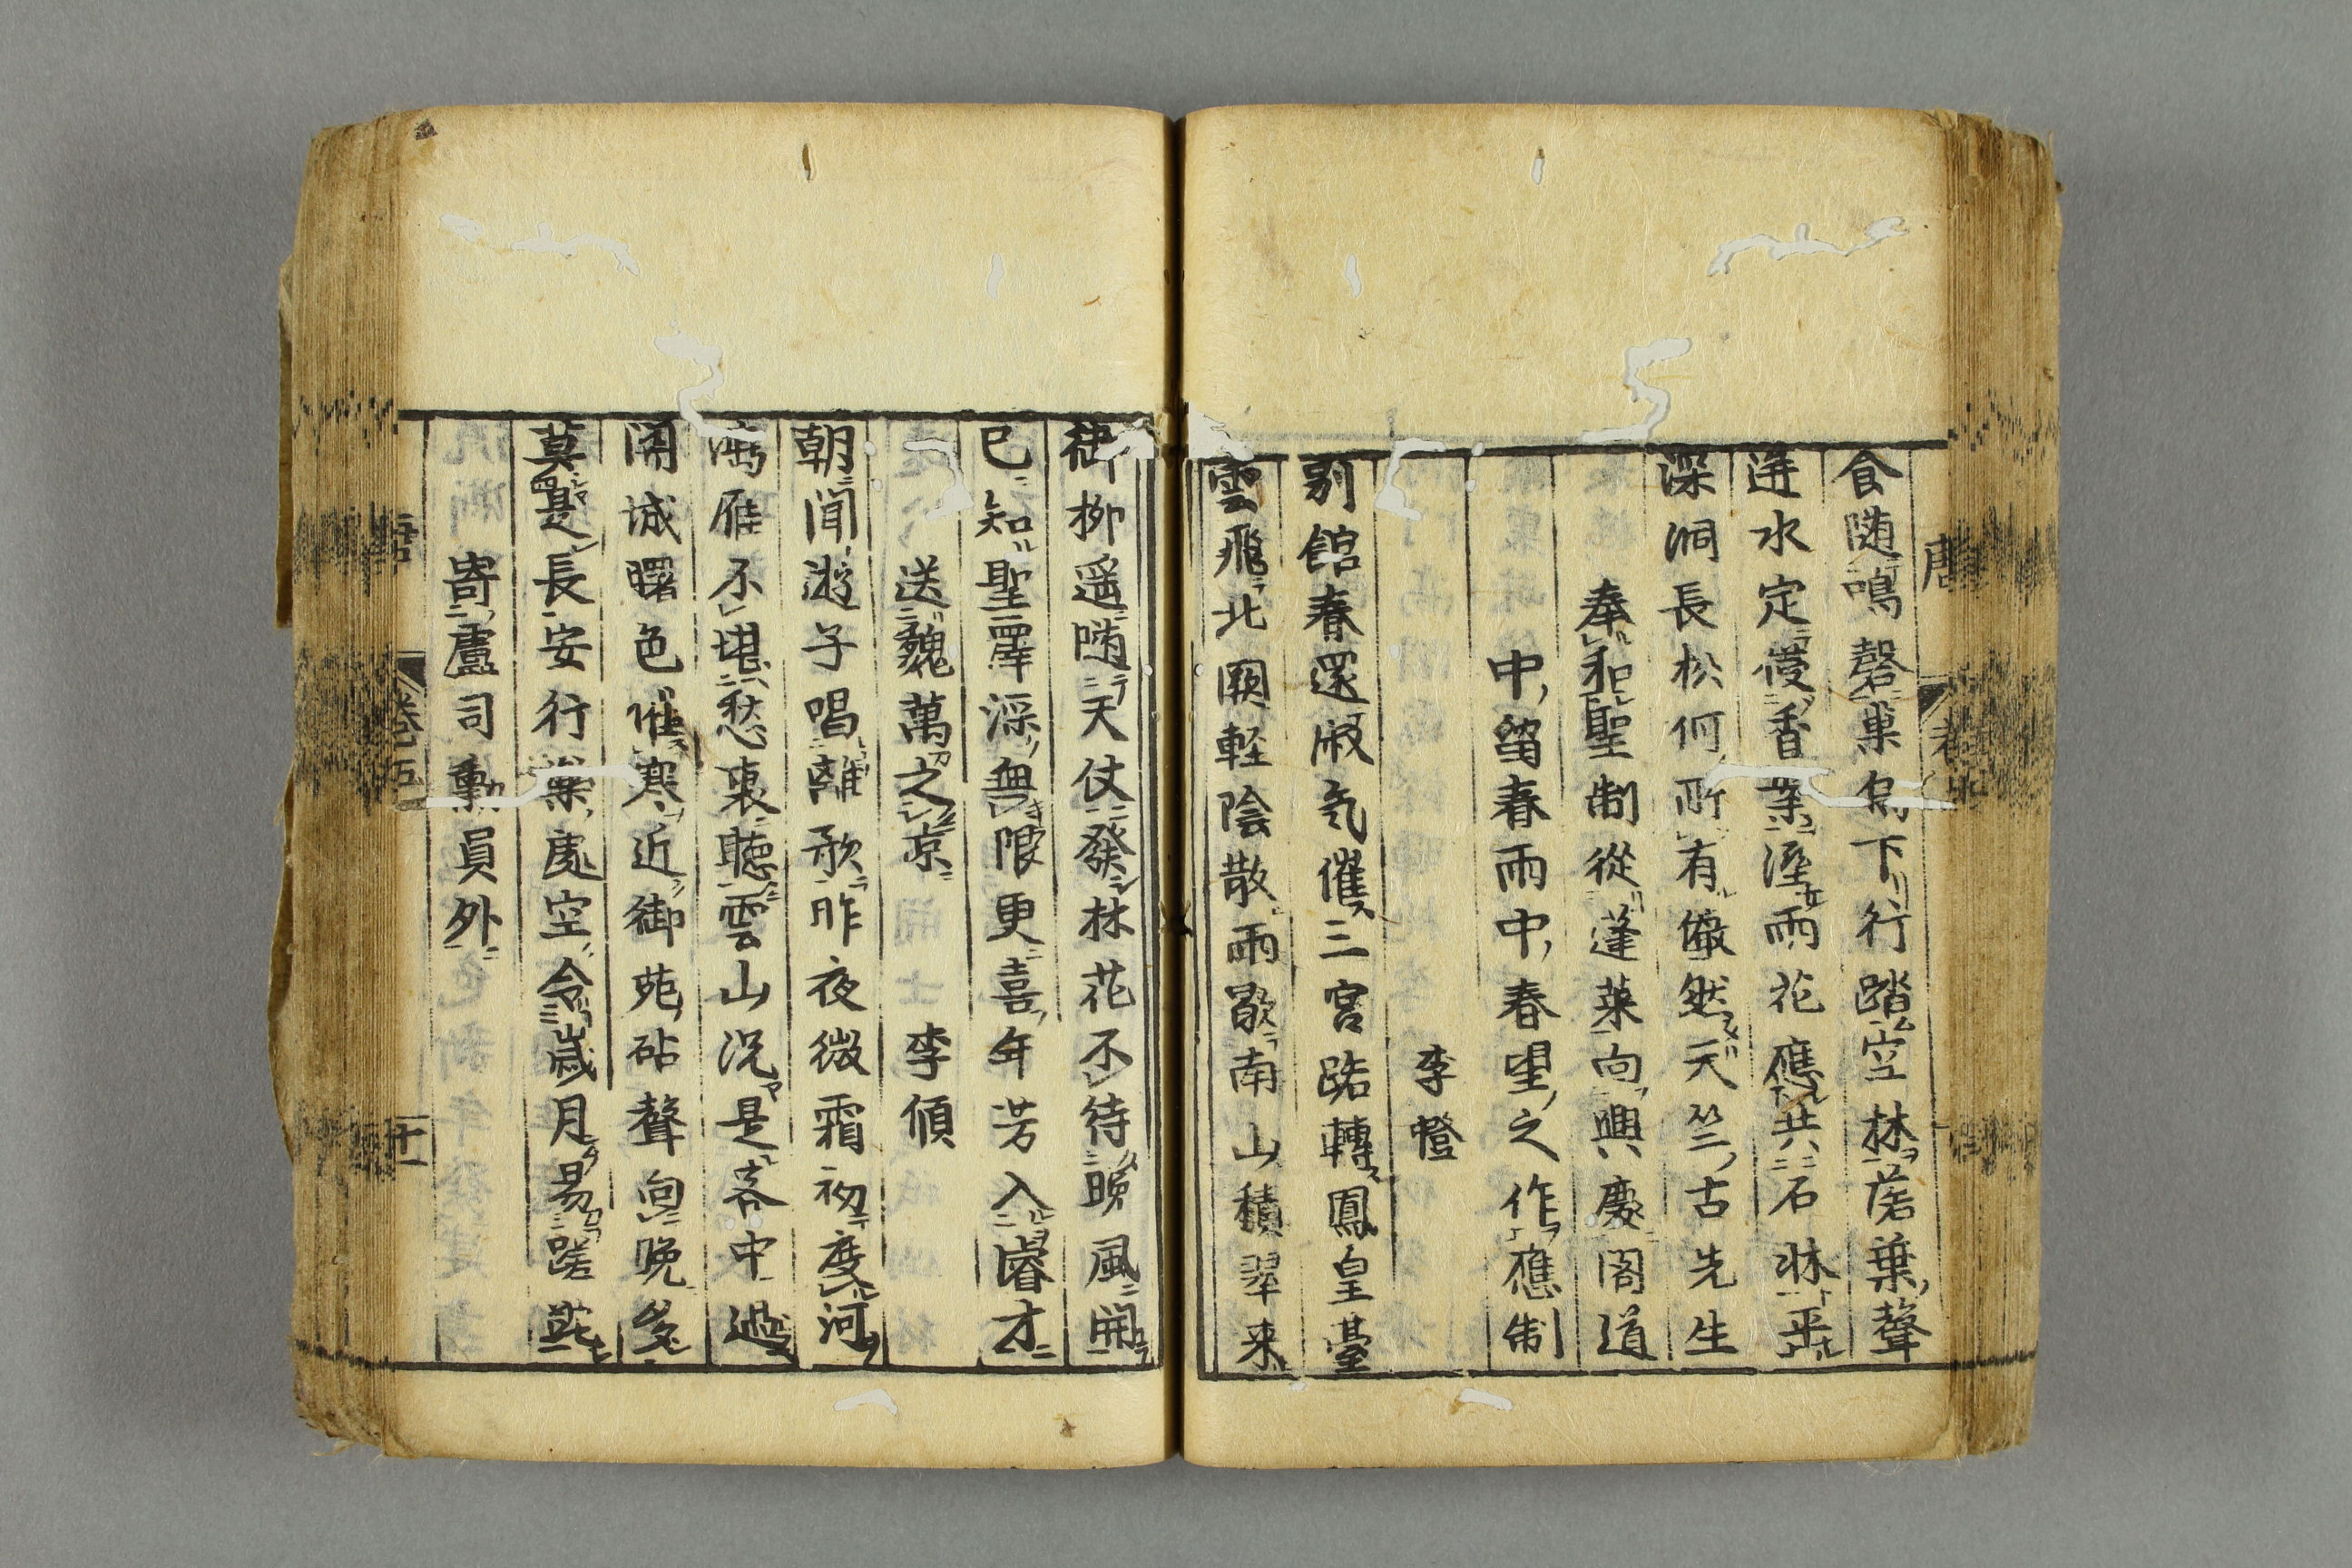 食随鳴磬巣烏下行踏空林落葉聲
迸水定侵香案湿雨花應共石牀平
深洞長松何所有儼然天竺古先生
奉和聖制從蓬莱向興慶閣道
中留春雨中春望之作應制
李憕
別館春還淑氣催三宮路轉鳳皇臺
雲飛北闕軽陰散雨歇南山積翠来
御柳遥随天仗發林花不待暁風開
已知聖澤深無限更喜年芳入睿才
送魏萬之京
李頎
朝聞遊子唱離歌昨夜微霜初度河
鴻雁不堪愁裏聴雲山况是客中過
関城曙色催寒近御苑砧聲向晩多
莫是長安行樂處空令歳月易蹉跎
寄盧司勲員外
唐
巻五
十一